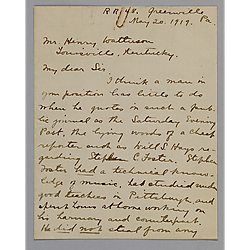 R R 48. Greenville Pa.
May 20. 1919.
Mr. Henry Watterson
Louisville, Kentucky.
My dear Sir
I think a man in
your position has little to do
when he quotes in such a pub-
lic journal as the Saturday Evening
Post, the lying words of a cheap
reporter such as Will S. Hays re-
garding Stephen C. Foster. Stephen
Foster had a technical know-
ledge of music, had studied under
good teachers in Pittsburgh, and
spent hours at home working on
his harmony and counterpoint.
He did not steal from any